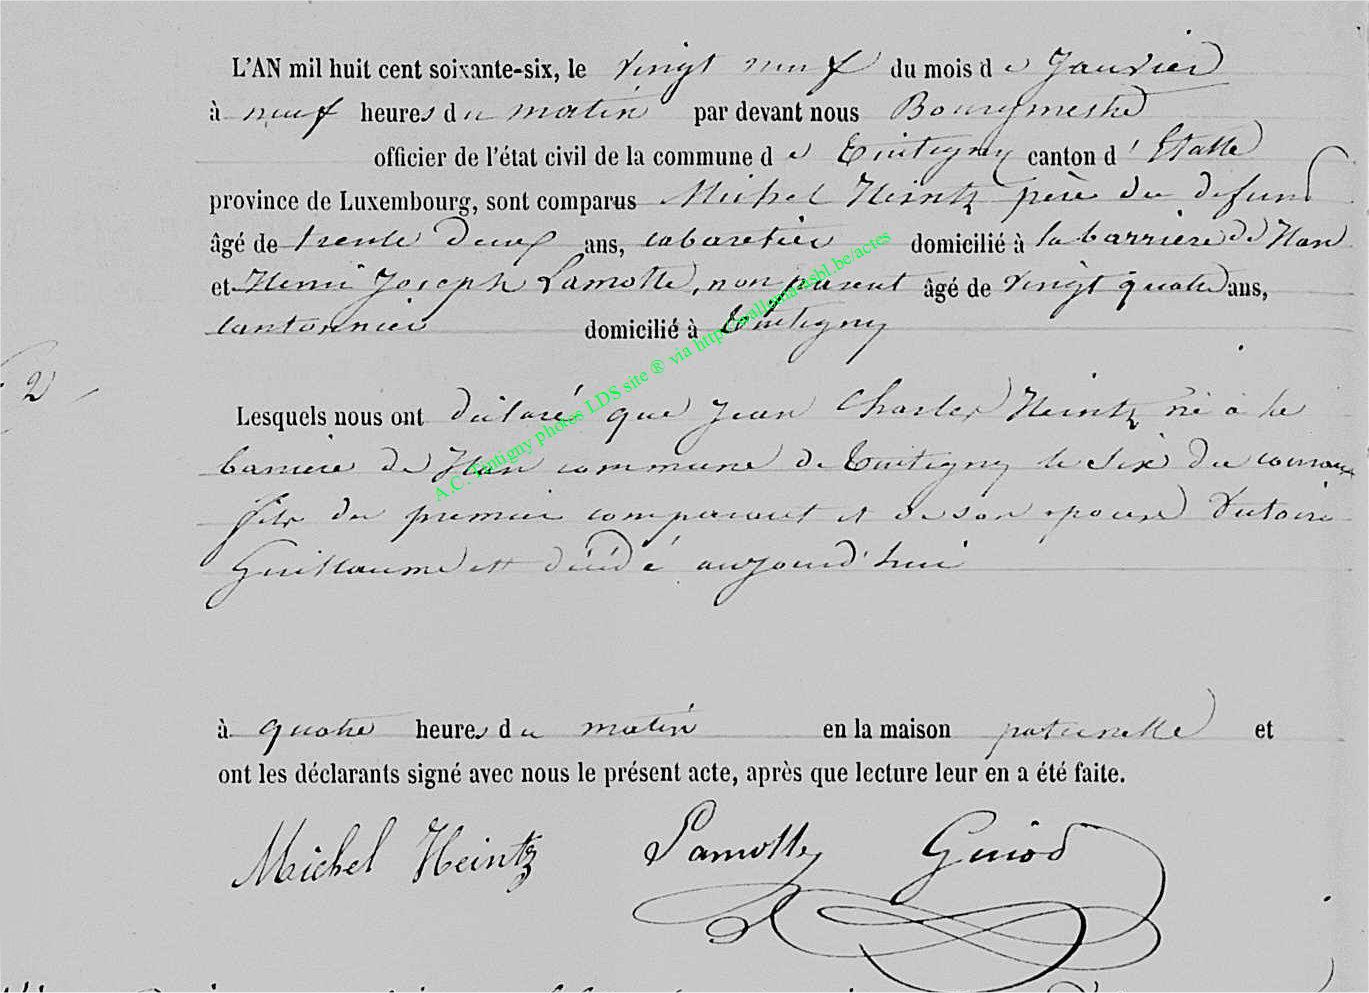 L'AN mil huit cent soixante-six, le vingt neuf du mois de Janvier
à neuf heures du matin par devant nous Bourgmestre
officier de l'état civil de la commune de Tintigny canton d'Etalle
province de Luxembourg, sont comparus Michel Heintz père du defunt
âgé de trente deux ans, cabaretier domicilié à la barriere de Han
et Henri Joseph Lamotte, non parent âgé de vingt quatre ans,
cantonnier domicilié à Tintigny
2
Lesquels nous ont déclaré que Jean Charles Heintz né à la
barriere de Han commune de Tintigny le six du courant
fils du premier comparant et de son epouse Victoire
Guillaume est décédé aujourd'hui
à quatre heures du matin en la maison paternelle et
ont les déclarants signé avec nous le présent acte, après que lecture leur en a été faite.
Michel Heintz Lamotte Guiod
A.C. Tintigny photos LDS site ® via http://wallonia-asbl.be/actes